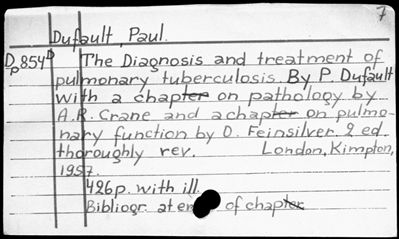 7
Dufault, Paul.
Dp854D The Diagnosis and treatment of
pulmonary tuberculosis. By P. Dufault
with a chapter on pathology by
A.R. Crane and a chapter on pulmo-
nary function by O. Feinsilver. 2 ed.
thoroughly rev. London, Kimpton,
1957.
426p. with ill.
Bibliogr. at en of chapter